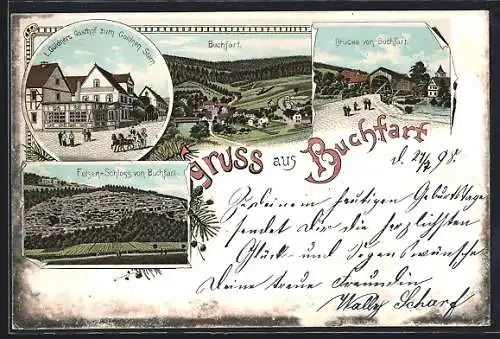 L. Güldner's Gasthof zum Goldnen Stern
Buchfart.
Brücke von Buchfart.
Gruss aus Buchfart
Felsen-Schloss von Buchfart
d. 27/7 98.
Zu deinem heutigen Geburtstage
sendet Dir die herzlichsten
Glück- und Segenswünsche
Deine treue Freundin
Wally Scharf